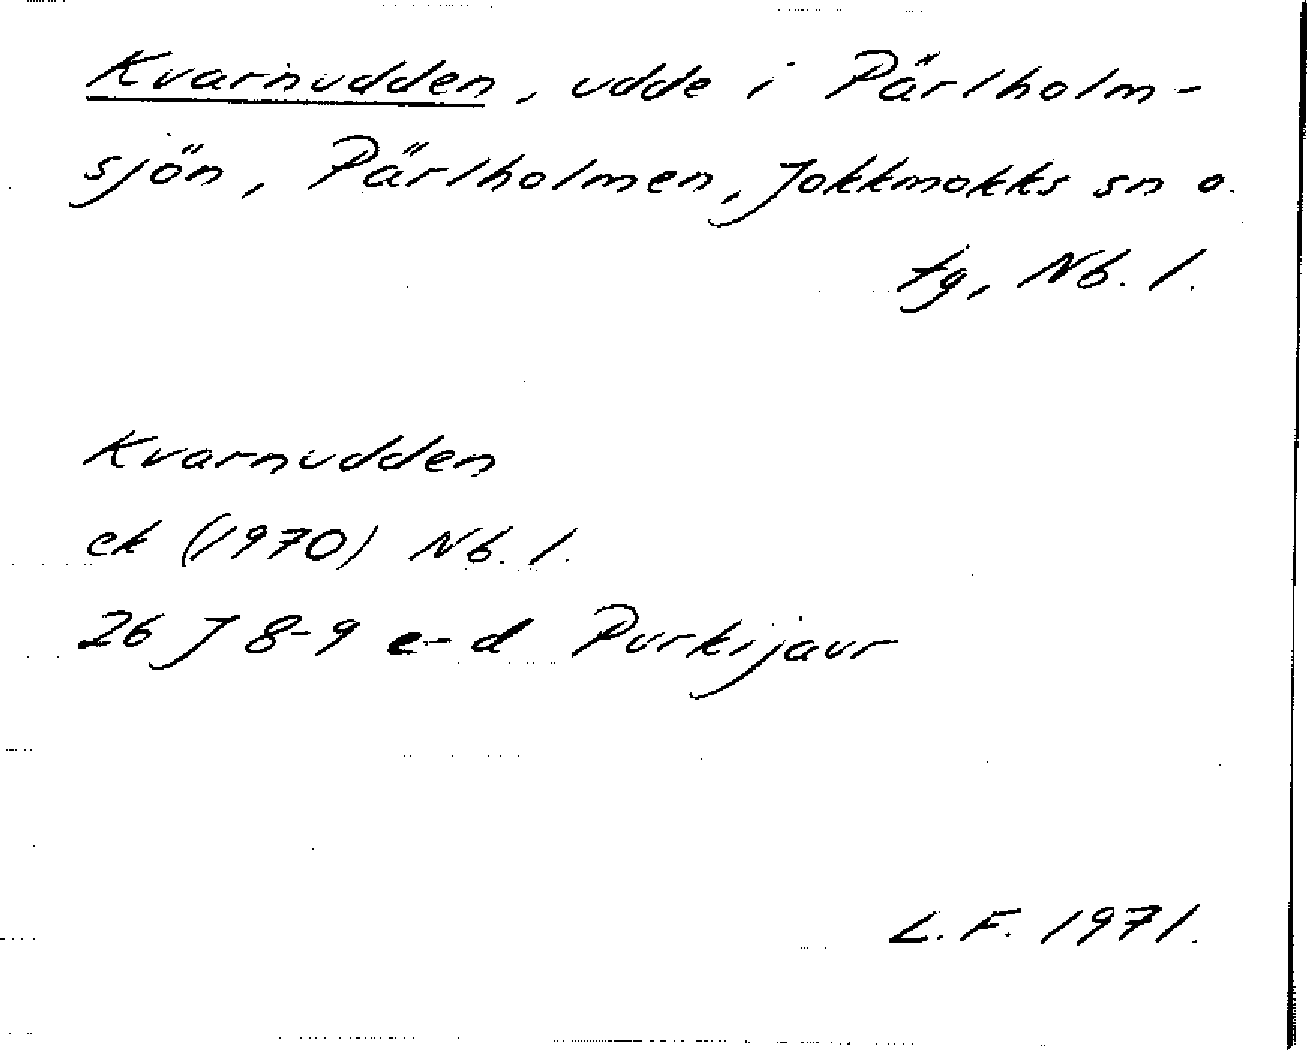 Kvarnudden, udde i Pärlholm-
sjön, Pärlholmen, Jokkmokks sn o.
tg, Nb. l.
Kvarnudden
ek (1970) Nb. l.
26 J 8-9 c-d Purkijaur
L. F. 1971.